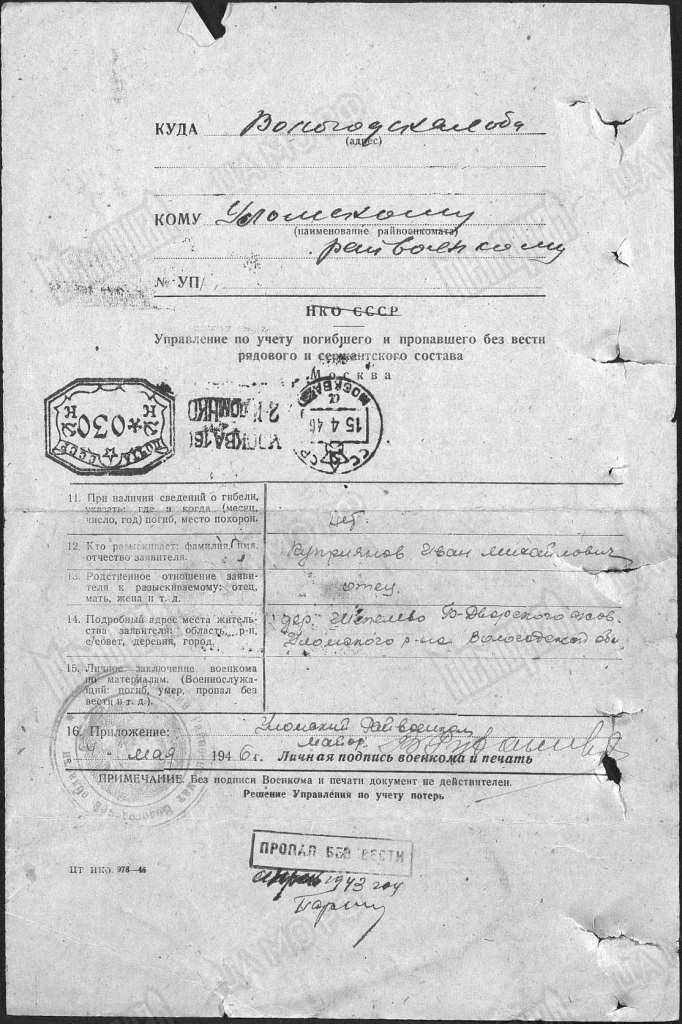 КУДА Вологодская обл
(адрес)
КОМУ Уломскому
(наименование райвоенкомата)
райвоенкому
№ УП/
НКО СССР
Управление по учету погибшего и пропавшего без вести
рядового и сержантского состава
Москва
ПОЧТА СССР
К *030 К
МОСКВА
15 4 46
СССР
11. При наличии сведений о гибели,
указать: где и когда (месяц,
число, год) погиб, место похорон.
нет
12. Кто разыскивает: фамилия, имя,
отчество заявителя.
Куприянов Иван Михайлович
13. Родственное отношение заяви-
теля к разыскиваемому: отец,
мать, жена и т. д.
отец
14. Подробный адрес места житель-
ства заявителя: область, р-н,
с/совет, деревня, город.
дер. Шепелево
Уломского р-на Вологодской обл.
15. Личное заключение военкома
по материалам. (Военнослужа-
щий: погиб, умер, пропал без
вести и т. д.).
16. Приложение:
Уломский Райвоенком
майор
мая 1946 г. Личная подпись военкома и печать
ПРИМЕЧАНИЕ. Без подписи Военкома и печати документ не действителен.
Решение Управления по учету потерь
ПРОПАЛ БЕЗ ВЕСТИ
апрель 1943 год
ЦТ НКО. 978—46